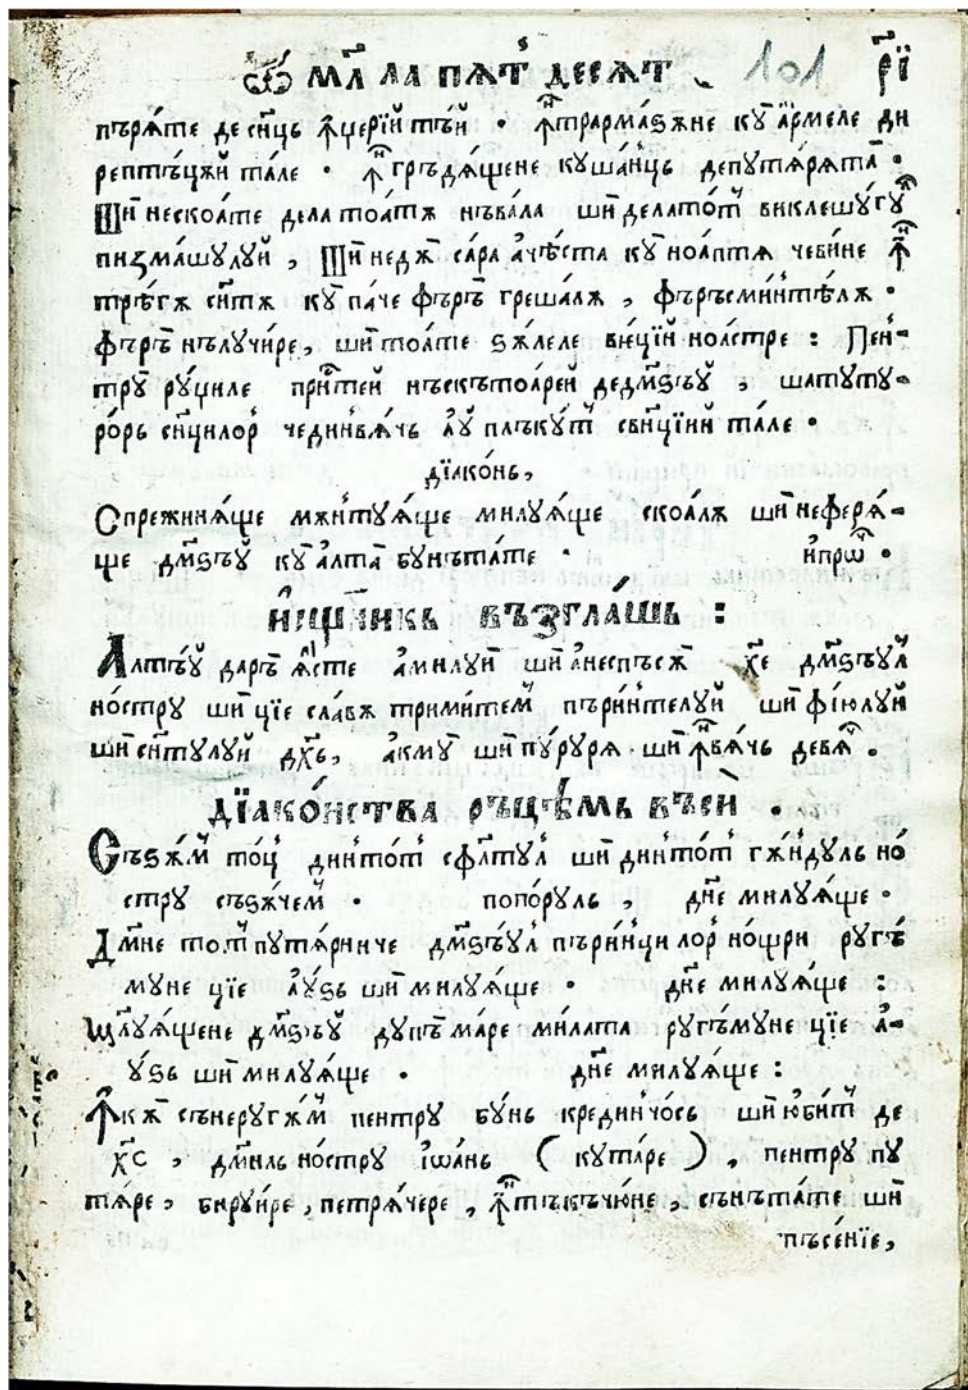 мл҃ла пѧт҆десѧт 101 р҃і
пърѧ́те де си҃нць ꙟ҆церїй тъ́й · ꙟ҆трарма́ѕѫне ку а҆́рмеле ди
рептъ́цѫй та́ле · ꙟ҆гръдѧ́щене кушѧ́нць депутѧ́рѧта ·
Ши нескоа́те дела тоа́тѫ нъва́ла ши делато́т виклешу́гꙋ
пизма́шулуй , Ши недѫ са́ра ачѣ́ста ку ноа́птѧ чеви́не ꙟ҆
трѣ́гѫ си҃нтѫ ку па́че фъръ греша́лѫ , фъръсми́нтѣ́лѫ ·
фъръ нълучи́ре, ши тоа́те ѕѫ́леле вїе́цїй ноа́стре : Пен-
тру ру́циле при́тей нъскътоа́рей дедм҃ѕъу , шатуту-
ро́рь си҃нцилор чединвѧ́чь а҆у плъкут сви҃нцїий та́ле ·
дїако́нь,
Спрежинѧ́ще мѫнтуѧ́ще милуѧ́ще скоа́лѫ ши неферѧ́-
ще дм҃ѕъу ку а҆лта бунъта́те · и҆прѡ ·
възгла́шь :
Алтъу даръ ѧ҆́сте амилуи ши а҆неспъсѫ х҃е дм҃ѕъул
но́стру ши цїе сла́вѫ трими́тем пъри́нтелуй ши фі́юлуй
ши си҃нтулуй дх҃ь, акму ши пу́руря ши ꙟ҆вѧ́чь девѧ .
дїако́нства ръцѣмь въси .
Съѕѫ́м то́ц динто́т сфлтул ши динто́т гѫ́ндуль но́
стру съѕѫ́чем · попо́руль , дн҃е милуѧ́ще ·
Дм҃не тотпутѧ́рниче дм҃ѕъ́ул пъри́нцилор но́щри ругъ́
муне цїе а҆у́ѕь ши милуѧ́ще · дн҃е милуѧ́ще :
Милуѧ́щене дм҃ѕъу дупъ ма́ре ми́лата ругъ́муне цїе а҆-
у́ѕь ши милуѧ́ще · дн҃е милуѧ́ще :
Ꙟ҆кѫ сънеругѫ́м пентру бу́нь крединчо́сь ши ю҆би́т де
х҃с , дм҃нль но́стру і҆ѡа́нь ( кута́ре ) , пентру пу
тѧ́ре , бируи́ре , петрѧ́чере , ꙟ҆тъкъчю́не , сънъта́те ши
пъсе́нїе,